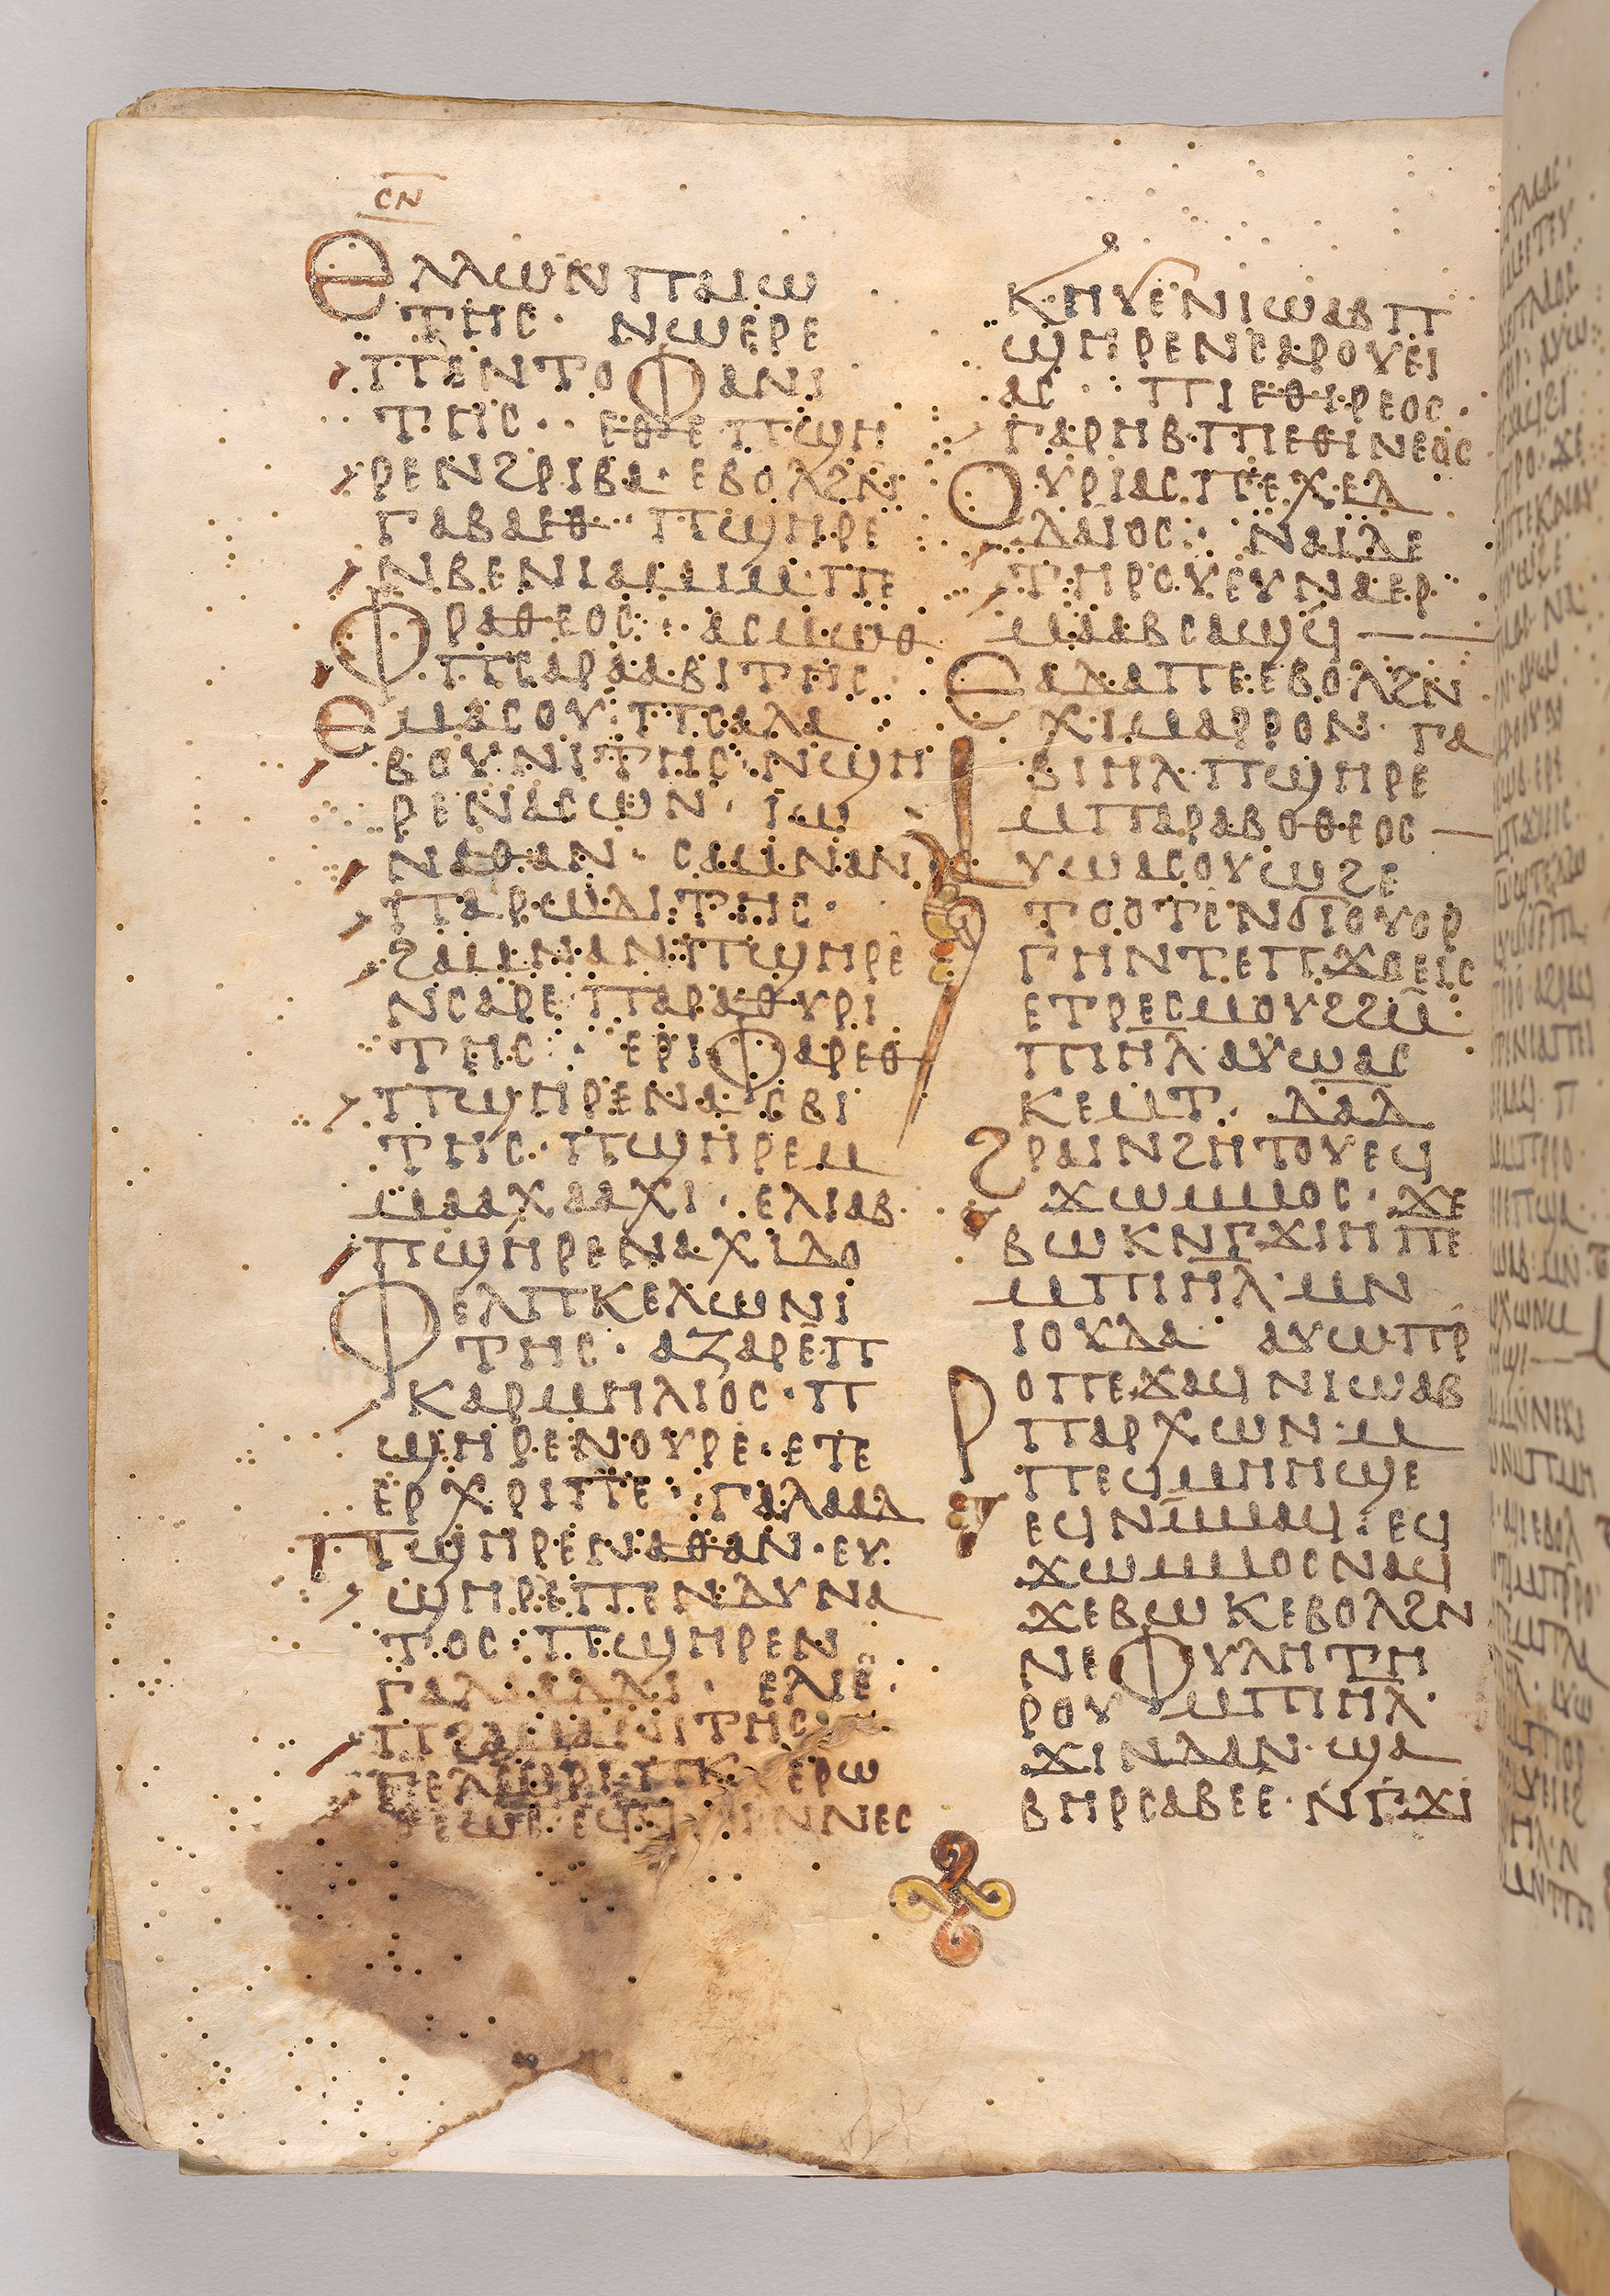 ⲤⲚ
ⲈⲖⲖⲰⲚⲠⲀⲓⲰ
ⲦⲎⲤ· ⲚⲰⲈⲢⲈ
ⲠⲠⲈⲚⲦⲞⲪⲀⲚⲒ
ⲦⲎⲤ· ⲈⲐⲐⲈ·ⲠϢⲎ
ⲢⲈⲚϨⲢⲒⲂⲀ·ⲈⲂⲞⲖϨⲚ
ⲄⲀⲂⲀⲈⲐ·ⲠϢⲎⲢⲈ
ⲚⲂⲈⲚⲒⲀⲘⲒⲘ·ⲠⲈ
ⲪⲢⲀⲐⲈⲞⲤ: ⲀⲤⲘⲰⲐ
ⲠⲤⲀⲢⲀⲀⲂⲒⲦⲎⲤ
ⲈⲘⲀⲤⲞⲨ:ⲠⲤⲀⲖⲀ
ⲂⲞⲨⲚⲒⲦⲎⲤ·ⲚϢⲎ
ⲢⲈⲚⲀⲤⲰⲚ· ⲒⲰ
ⲚⲀⲐⲀⲚ· ⲤⲀⲘⲚⲀⲚ
ⲠⲀⲢⲰⲖⲒⲦⲎⲤ·
ϨⲀⲒⲘⲚⲀⲚⲠϢⲎⲢⲈ
ⲚⲤⲀⲢⲈ·ⲠⲀⲢⲀⲐⲨⲢⲒ
ⲦⲎⲤ: ⲈⲢⲒⲪⲀⲢⲈⲐ
ⲠϢⲎⲢⲈⲚⲀⲤⲂⲒ
ⲦⲎⲤ·ⲠϢⲎⲢⲈⲘ
ⲘⲀⲀⲬⲀⲀⲬⲒ· ⲈⲖⲒⲀⲂ·
ⲠϢⲎⲢⲈⲚⲀⲬⲒⲆⲞ
ⲪⲈⲖⲠⲔⲈⲖⲰⲚⲒ
ⲦⲎⲤ· ⲀⲌⲀⲢⲈ·Ⲡ
ⲔⲀⲢⲘⲎⲖⲒⲞⲤ·Ⲡ
ϢⲎⲢⲈⲚⲞⲨⲢⲈ·ⲈⲦⲈ
ⲈⲢⲬⲢⲒⲠⲈ· ⲄⲀⲖⲀⲀⲆ
ⲠϢⲎⲢⲈⲚⲀⲐⲀⲚ·ⲈⲨ
ϢⲎⲢⲈⲠⲈⲚⲆⲨⲚⲀ
ⲦⲞⲤ:ⲠϢⲎⲢⲈⲚ
ⲈⲖⲒⲈ·
ⲔⲎⲨⲈⲚⲒⲰⲀⲂⲠ
ϢⲎⲢⲈⲚⲤⲀⲢⲞⲨⲈⲒ
ⲀⲤ· ⲠⲒⲈⲐⲒⲢⲈⲞⲤ·
ⲄⲀⲢⲎⲂ·ⲠⲒⲈⲐⲒⲚⲈⲞⲤ
ⲞⲨⲢⲒⲀⲤ·ⲠⲈⲬⲈⲆ
ⲆⲀⲒⲞⲤ: ⲚⲀⲒⲆⲈ
ⲦⲎⲢⲞⲨⲈⲨⲚⲀⲈⲢ
ⲘⲀⲀⲂⲤⲀϢϤ——
ⲤⲀⲆⲀⲠⲈⲈⲂⲞⲖϨⲚ
ⲬⲒⲘⲀⲢⲢⲞⲚ· ⲄⲀ
ⲂⲒⲎⲖ·ⲠϢⲎⲢⲈ
ⲘⲠⲀⲢⲀⲂⲞⲐⲈⲞⲤ—
ⲀⲨⲰⲀⲤⲞⲨⲰϨⲈ
ⲦⲞⲞⲦⲤⲚϬⲒⲞⲨⲞⲢ
ⲄⲎⲚⲦⲈⲠϪⲞⲈⲒⲤ
ⲈⲦⲢⲈⲤⲘⲞⲨϨϨⲘ̄
ⲠⲒⲎ̄Ⲗ·ⲀⲨⲰⲀⲤ
ⲔⲈⲘⲦ· Ⲇ̄Ⲁ̄Ⲇ̄
ϨⲢⲀⲒⲚϨⲎⲦⲞⲨⲈϤ
ϪⲰⲘⲘⲞⲤ· ϪⲈ
ⲂⲰⲔⲚⲄ̄ϪⲒⲎⲠⲈ
ⲘⲠⲒⲎ̄Ⲗ·ⲘⲚ
ⲒⲞⲨⲆⲀ· ⲀⲨⲰⲠⲢ̄
ⲢⲞⲠⲈϪⲀϤⲚⲒⲰⲀⲂ
ⲠⲀⲢⲬⲰⲚ·Ⲙ
ⲠⲈϤⲘⲎⲎϢⲈ
ⲈⲦϤⲚⲘ̄ⲘⲀϤ:ⲈϤ
ϪⲰⲘⲘⲞⲤⲚⲀϤ
ϪⲈⲂⲰⲔⲈⲂⲞⲖϨⲚ
ⲚⲈⲪⲨⲖⲎⲦⲎ
ⲢⲞⲨⲘⲠⲒⲎ̄Ⲗ·
ϪⲒⲚⲆⲀⲚ·ϢⲀ
ⲂⲎⲢⲤⲀⲂⲈⲈ·ⲚⲄ̄ϪⲒ